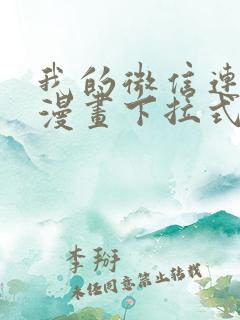 我的微信連
漫畫下拉式
李掰
未经同意禁止转载